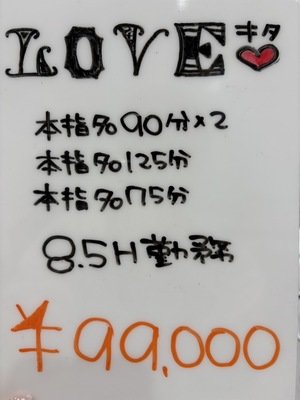 LOVE キタ♥
本指名90分×2
本指名125分
本指名75分
8.5H勤務
¥99,000